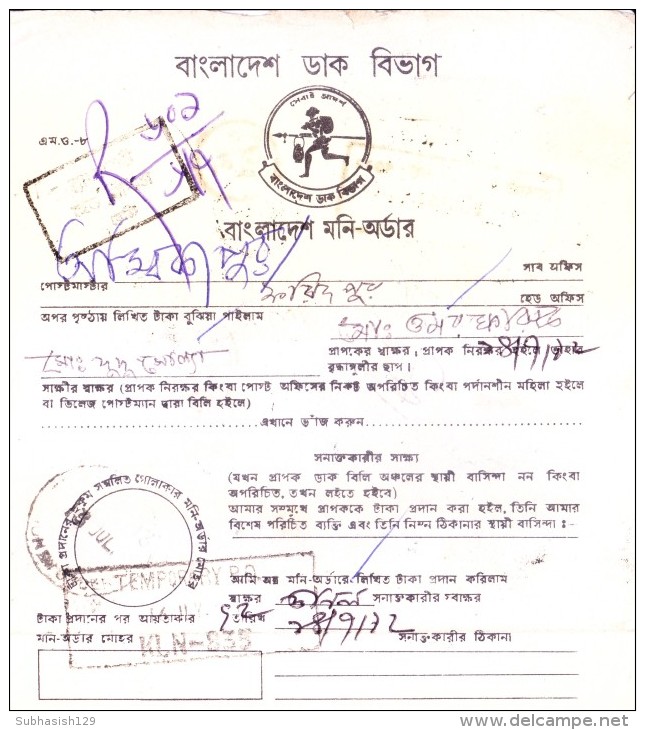 বাংলাদেশ ডাক বিভাগ
সেবাই আদর্শ
এম.ও.-৮
বাংলাদেশ ডাক বিভাগ
বাংলাদেশ মনি-অর্ডার
অম্বিকাপুর
সাব অফিস
পোস্টমাস্টার
ফরিদপুর
হেড অফিস
অপর পৃষ্ঠায় লিখিত টাকা বুঝিয়া পাইলাম
মোঃ ওমর ফারুক
প্রাপকের স্বাক্ষর, প্রাপক নিরক্ষর হইলে তাহার
বৃদ্ধাঙ্গুলীর ছাপ।
সাক্ষীর স্বাক্ষর (প্রাপক নিরক্ষর কিংবা পোস্ট অফিসের নিকট অপরিচিত কিংবা পর্দানশীন মহিলা হইলে
বা ভিলেজ পোস্টম্যান দ্বারা বিলি হইলে)
এখানে ভাঁজ করুন
সনাক্তকারীর সাক্ষ্য
(যখন প্রাপক ডাক বিলি অঞ্চলের স্থায়ী বাসিন্দা নন কিংবা
অপরিচিত, তখন লইতে হইবে)
আমার সম্মুখে প্রাপককে টাকা প্রদান করা হইল, তিনি আমার
বিশেষ পরিচিত ব্যক্তি এবং তিনি নিম্ন ঠিকানার স্থায়ী বাসিন্দা :-
টাকা প্রদানের তারিখ সম্বলিত গোলাকার মনি-অর্ডার মোহর
JUL
TEMPORARY P.O
আমি অত্র মনি-অর্ডারে লিখিত টাকা প্রদান করিলাম
স্বাক্ষর
সনাক্তকারীর স্বাক্ষর
টাকা প্রদানের পর আয়তাকার
তারিখ
মনি-অর্ডার মোহর
সনাক্তকারীর ঠিকানা
Subhasish129
www.delcampe.net